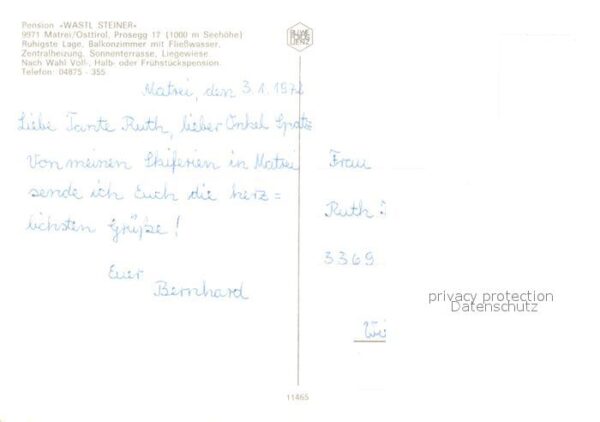 Pension »WASTL STEINER«
9971 Matrei/Osttirol, Prosegg 17 (1000 m Seehöhe)
Ruhigste Lage, Balkonzimmer mit Fließwasser,
Zentralheizung, Sonnenterrasse, Liegewiese.
Nach Wahl Voll-, Halb- oder Frühstückspension.
Telefon: 04875 - 355
Matrei, den 3.1.1972
Liebe Tante Ruth, lieber Onkel Spatz
Von meinen Skiferien in Matrei
sende ich Euch die herz=
lichsten Grüße!
Euer
Bernhard
Frau
Ruth
3369
privacy protection
Datenschutz
11465